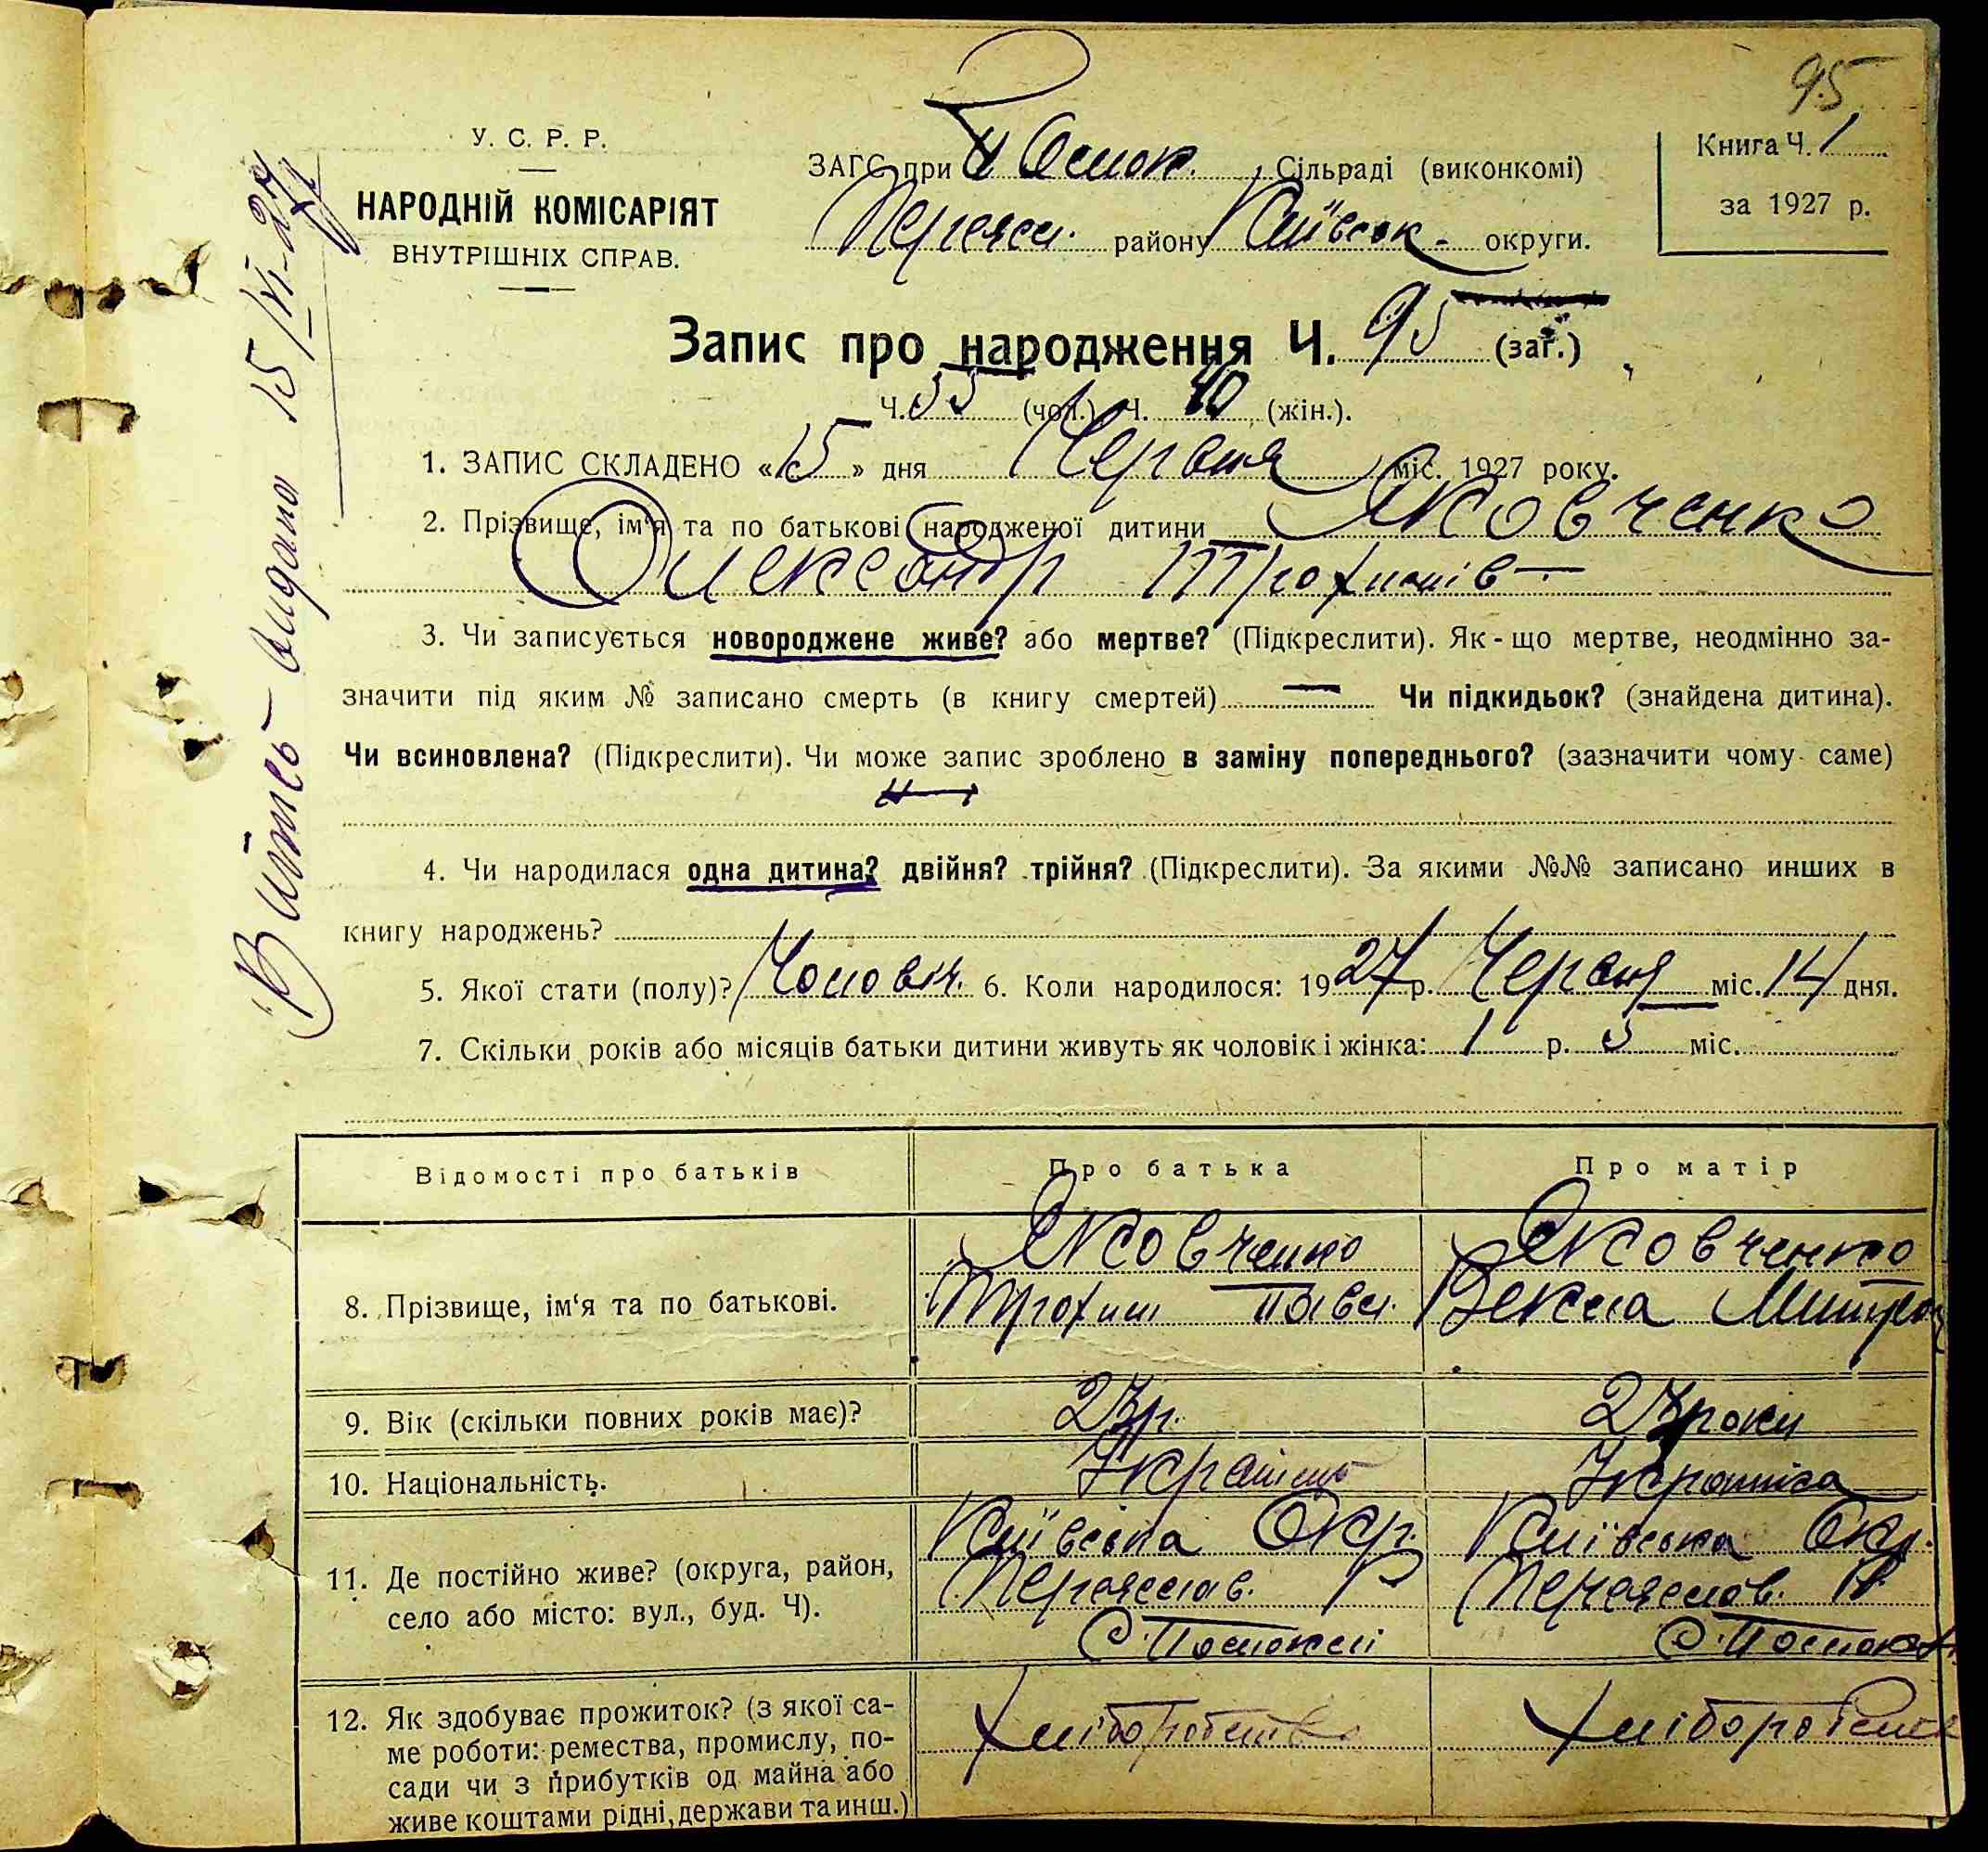 95
У. С. Р. Р.
НАРОДНІЙ КОМІСАРІЯТ
ВНУТРІШНІХ СПРАВ.
ЗАГС при Сільраді (виконкомі)
Переясл. району Київськ. округи.
Книга Ч. 1
за 1927 р.
Витяг видано 15/VI-27
Запис про народження Ч. 95 (заг.)
Ч. 55 (чол.) Ч. 40 (жін.).
1. ЗАПИС СКЛАДЕНО «15» дня Червня міс. 1927 року.
2. Прізвище, ім'я та по батькові народженої дитини Яковченко
Олександр Трохимів
3. Чи записується новороджене живе? або мертве? (Підкреслити). Як-що мертве, неодмінно за-
значити під яким № записано смерть (в книгу смертей) — Чи підкидьок? (знайдена дитина).
Чи всиновлена? (Підкреслити). Чи може запис зроблено в заміну попереднього? (зазначити чому саме)
4. Чи народилася одна дитина? двійня? трійня? (Підкреслити). За якими №№ записано инших в
книгу народжень?
5. Якої стати (полу)? Чоловіч. 6. Коли народилося: 1927 р. Червня міс. 14 дня.
7. Скільки років або місяців батьки дитини живуть як чоловік і жінка: 1 р. 5 міс.
Відомості про батьків Про батька Про матір
8. Прізвище, ім'я та по батькові. Яковченко Яковченко
Трохим Павл. Векла Митроф
9. Вік (скільки повних років має)? 23 р. 23 роки
10. Національність. Українець Українка
11. Де постійно живе? (округа, район, Київська Окр. Київська Окр.
село або місто: вул., буд. Ч). Переяслав. Р Переяслав. Р
12. Як здобуває прожиток? (з якої са- Хліборобство Хліборобств
ме роботи: ремества, промислу, по-
сади чи з прибутків од майна або
живе коштами рідні, держави та инш.)